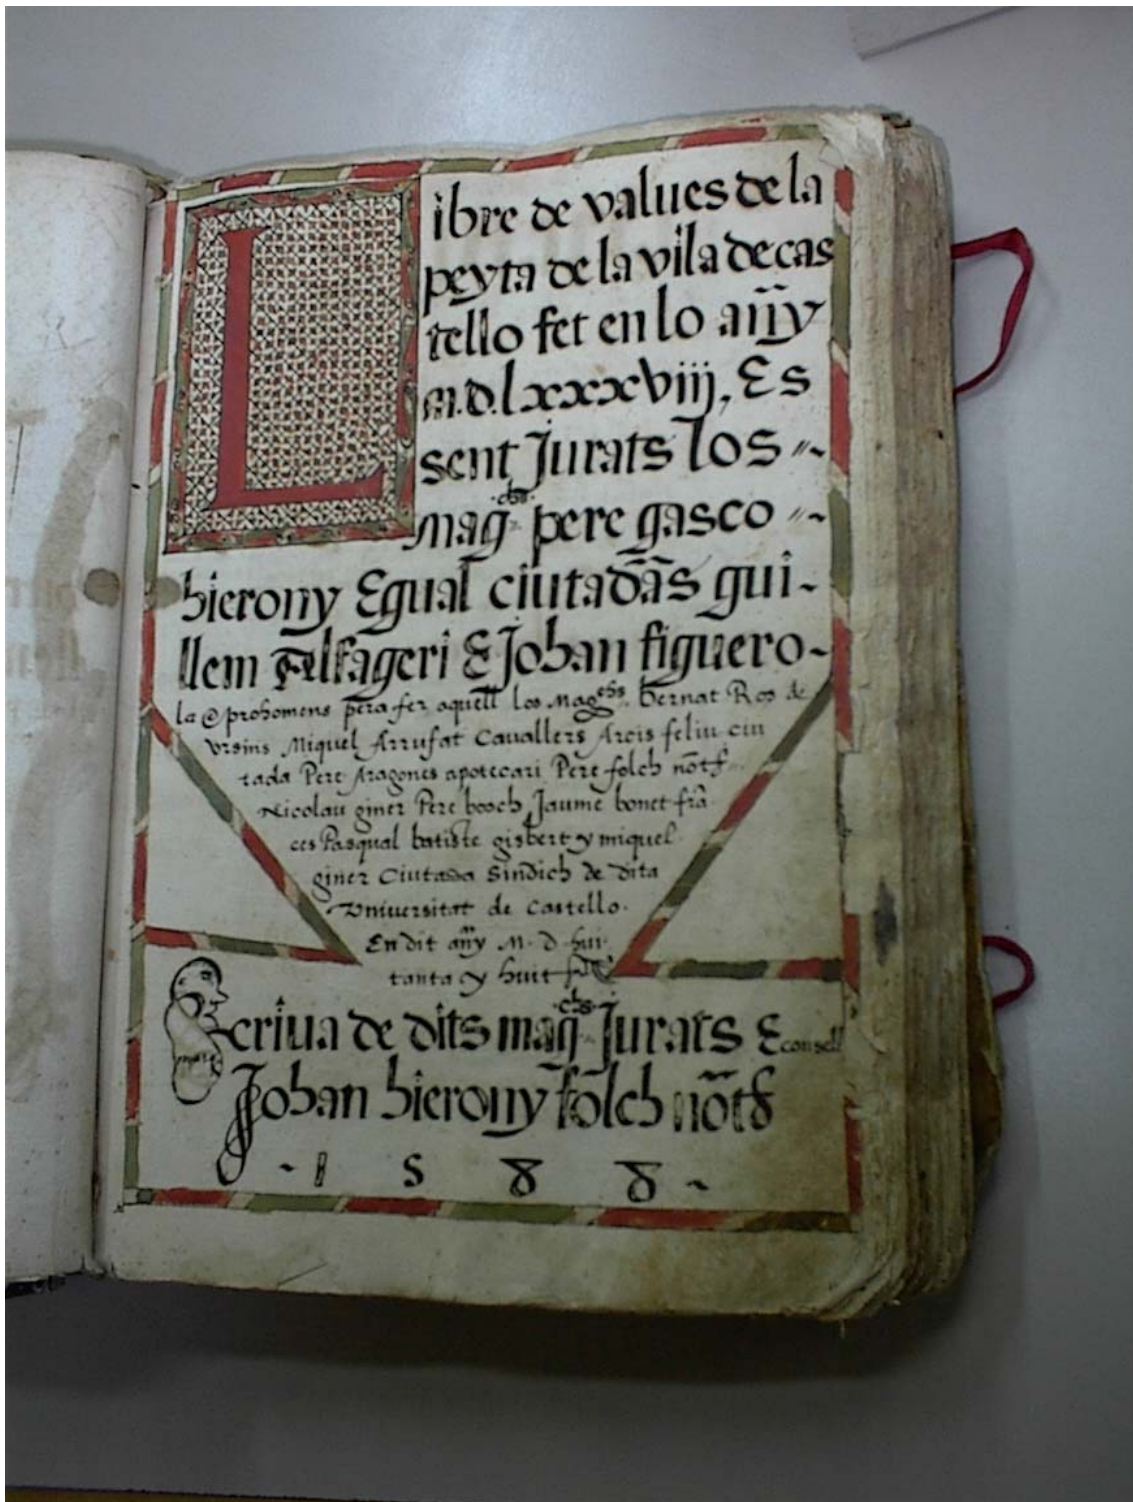 Libre de values de la
peyta de la vila de cas
tello fet en lo añy
m.d.lxxxviij, Es
sent Jurats los
magchs pere gasco
hierony Egual ciutadãs gui-
llem Alfageri E Johan figuero-
la e prohomens pera fer aquell los Magchs. bernat Ros de
vrsins Miquel Arrufat Cauallers Arcis feliu ciu
tada Pere Aragones apotecari Pere folch nõtr
Nicolau giner Pere bosch Jaume bonet frã
ces Pasqual batiste gisbert y miquel
giner Ciutada Sindich de dita
Vniuersitat de Castello.
En dit añy M. D. hui
tanta y huit
Scriua de dits magchs Jurats E consell
Johan hierony folch nõtr
-1 5 8 8-